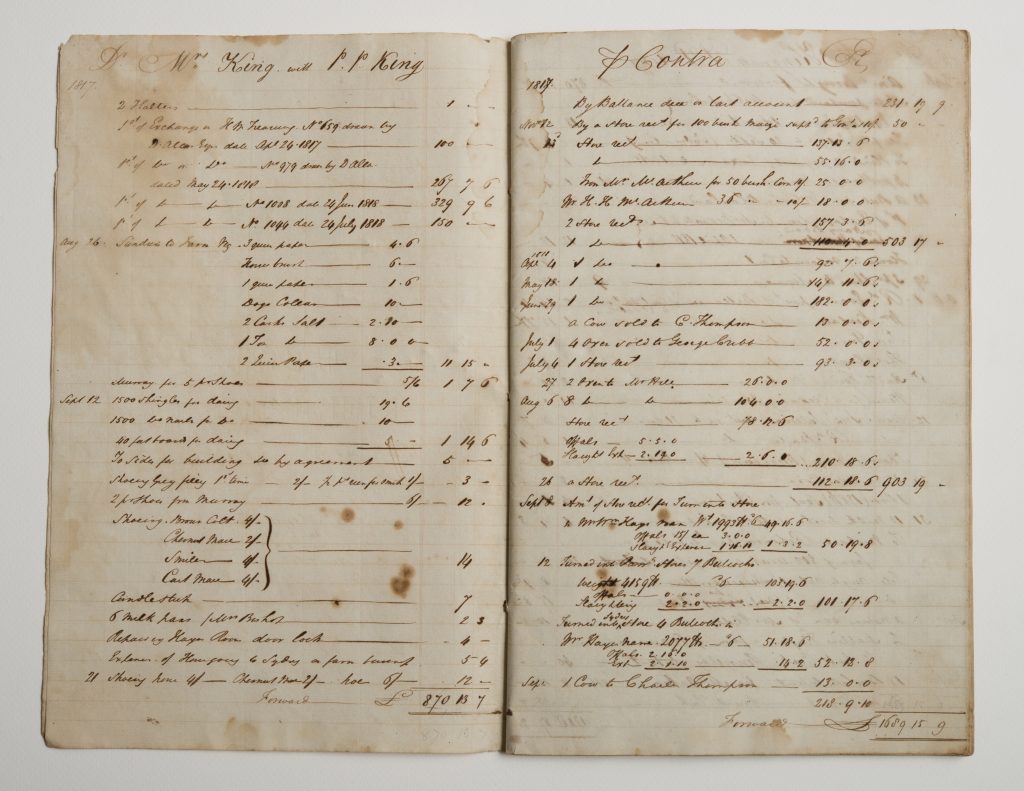 Dr Mrs King with P. P King
1817
2 Halters 1 –
1st of Exchange on H M Treasury No 659 drawn by
D Allan Esqr date Apl 24. 1817 100 –
1st of Do on Do No 979 drawn by D Allan
dated May 24. 1818 267 7 6
1st of Do Do No 1028 date 24 June 1818 329 9 6
1st of Do Do No 1044 date 24 July 1818 150 –
Aug 26 Sundries to Farm 3 quire paper 4.6
Horse brush 6 –
1 quire paper 1.6
Dogs Collar 10 –
2 Casks Salt 2.10 –
1 Do 8.0.0
3 – 11 15 –
Murray for 5 pr Shoes 5/6 1 7 6
Sept 12 1500 Shingles for dairy 19.6
1500 Do nails for Do 10 –
40 feet boards for dairy 5 – 1 14 6
To for building Do by agreement 5 –
Shoeing Grey filley 1st time 2/ 3 –
2 pr Shoes from Murray 6/ 12 –
Shoeing Brown Colt 4/
Chesnut Mare 2/
Smiler 4/
Cart Mare 4/ 14
Candlestick 7
6 Milk pans 2 3
Repairing Room door lock 4 –
to Sydney on farm 5 4
21 Shoeing horse 4/ Chesnut Mare 2/ hoe 6/ 12 –
Forward £ 870 13 7
Pr Contra Cr
1817
By Ballance due on last account 231 19 9
Novr 12 By a Store rect for 100 bush Maize 10/ 50 –
Store rect 137.13.6
Do 55.16.0
from Mr McArthur for 50 bush Corn 10/ 25.0.0
Mr H. H. McArthur 36 10/ 18.0.0
2 Store rect 157.3.6
1 Do 110.4.0 503 17 –
1818
Apl 4 1 Do 92.7.6
May 18 1 Do 147.11.6
June 29 1 Do 182.0.0
a Cow sold to C. Thompson 13.0.0
July 1 4 Oxen sold to George Cubb 52.0.0
July 4 1 Store rect 93.3.0
27 2 Oxen to Mr 26.0.0
Aug 6 8 Do Do 104.0.0
Store rect 78.12.6
Offals 5.5.0
Slaught Ext 2.19.0 2.6.0 210.18.6
26 a Store rect 112.18.6 903 19 –
Sept 8 Amt of Store rect for Turned into Store
Wt 1993 lb 6 49.16.6
Offals 15/ ea 3.0.0
1.16.10 1.3.2 50.19.8
12 Turned into Store 7 Bullocks
Weight 4159 lb 6 103.19.6
Offals 0.0.0
Slaughtering 2.2.0 2.2.0 101.17.6
Turned into Sydney Store 4 Bullocks
2077 lb 6 51.18.6
Offals 2.16.0
Ext 2.1.10 14.2 52.13.8
Sept 1 Cow to Charles Thompson 13.0.0
218.9.10
Forward £ 1689 15 9